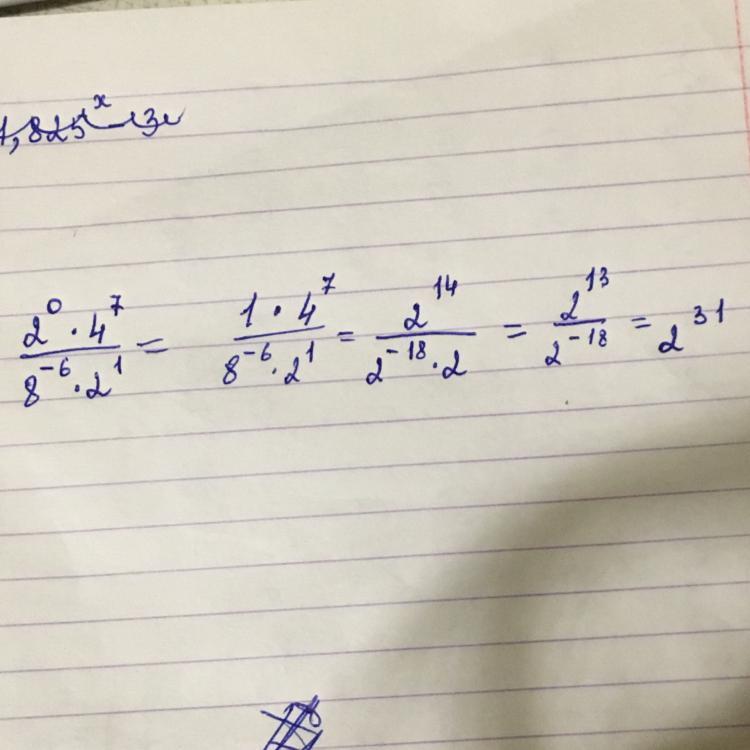 2⁰ · 4⁷ / 8⁻⁶ · 2¹ = 1 · 4⁷ / 8⁻⁶ · 2¹ = 2¹⁴ / 2⁻¹⁸ · 2 = 2¹³ / 2⁻¹⁸ = 2³¹